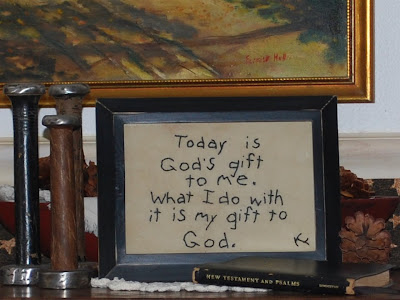 Today is
God's gift
to me.
What I do with
it is my gift to
God.
NEW TESTAMENT AND PSALMS